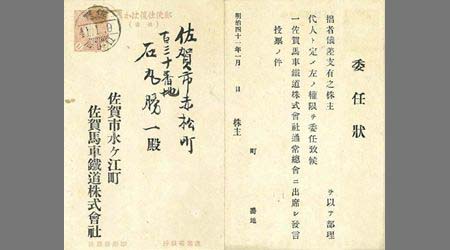 郵便往復はかき
佐賀
41.1.9
佐賀市赤松町
百三十番地
石丸勝一殿
佐賀市水ケ江町
佐賀馬車鐵道株式會社
委任狀
拙者儀差支有之株主　ヲ以テ部理
代人ト定メ左ノ權限ヲ委任致候
一佐賀馬車鐵道株式會社通常總會ニ出席シ發言
投票ノ件
明治四十一年一月　日
株主　町　番地